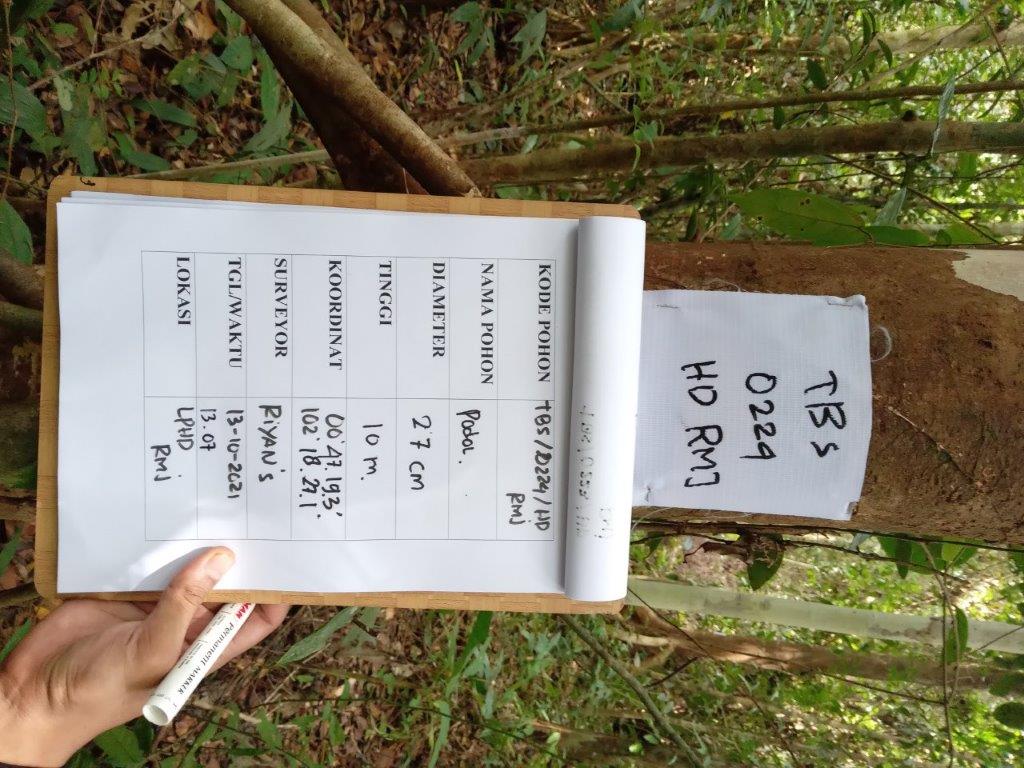 TBS
0224
HD RMJ
KODE POHON TBS/0224/HD
RMJ
NAMA POHON Podol.
DIAMETER 27 cm
TINGGI 10 m.
KOORDINAT 00°47.19.3'
102° 18.27.1'
SURVEYOR RiYAN's
TGL/WAKTU 13-10-2021
13.07
LOKASI LPHD
RMJ
Permanent MARKER